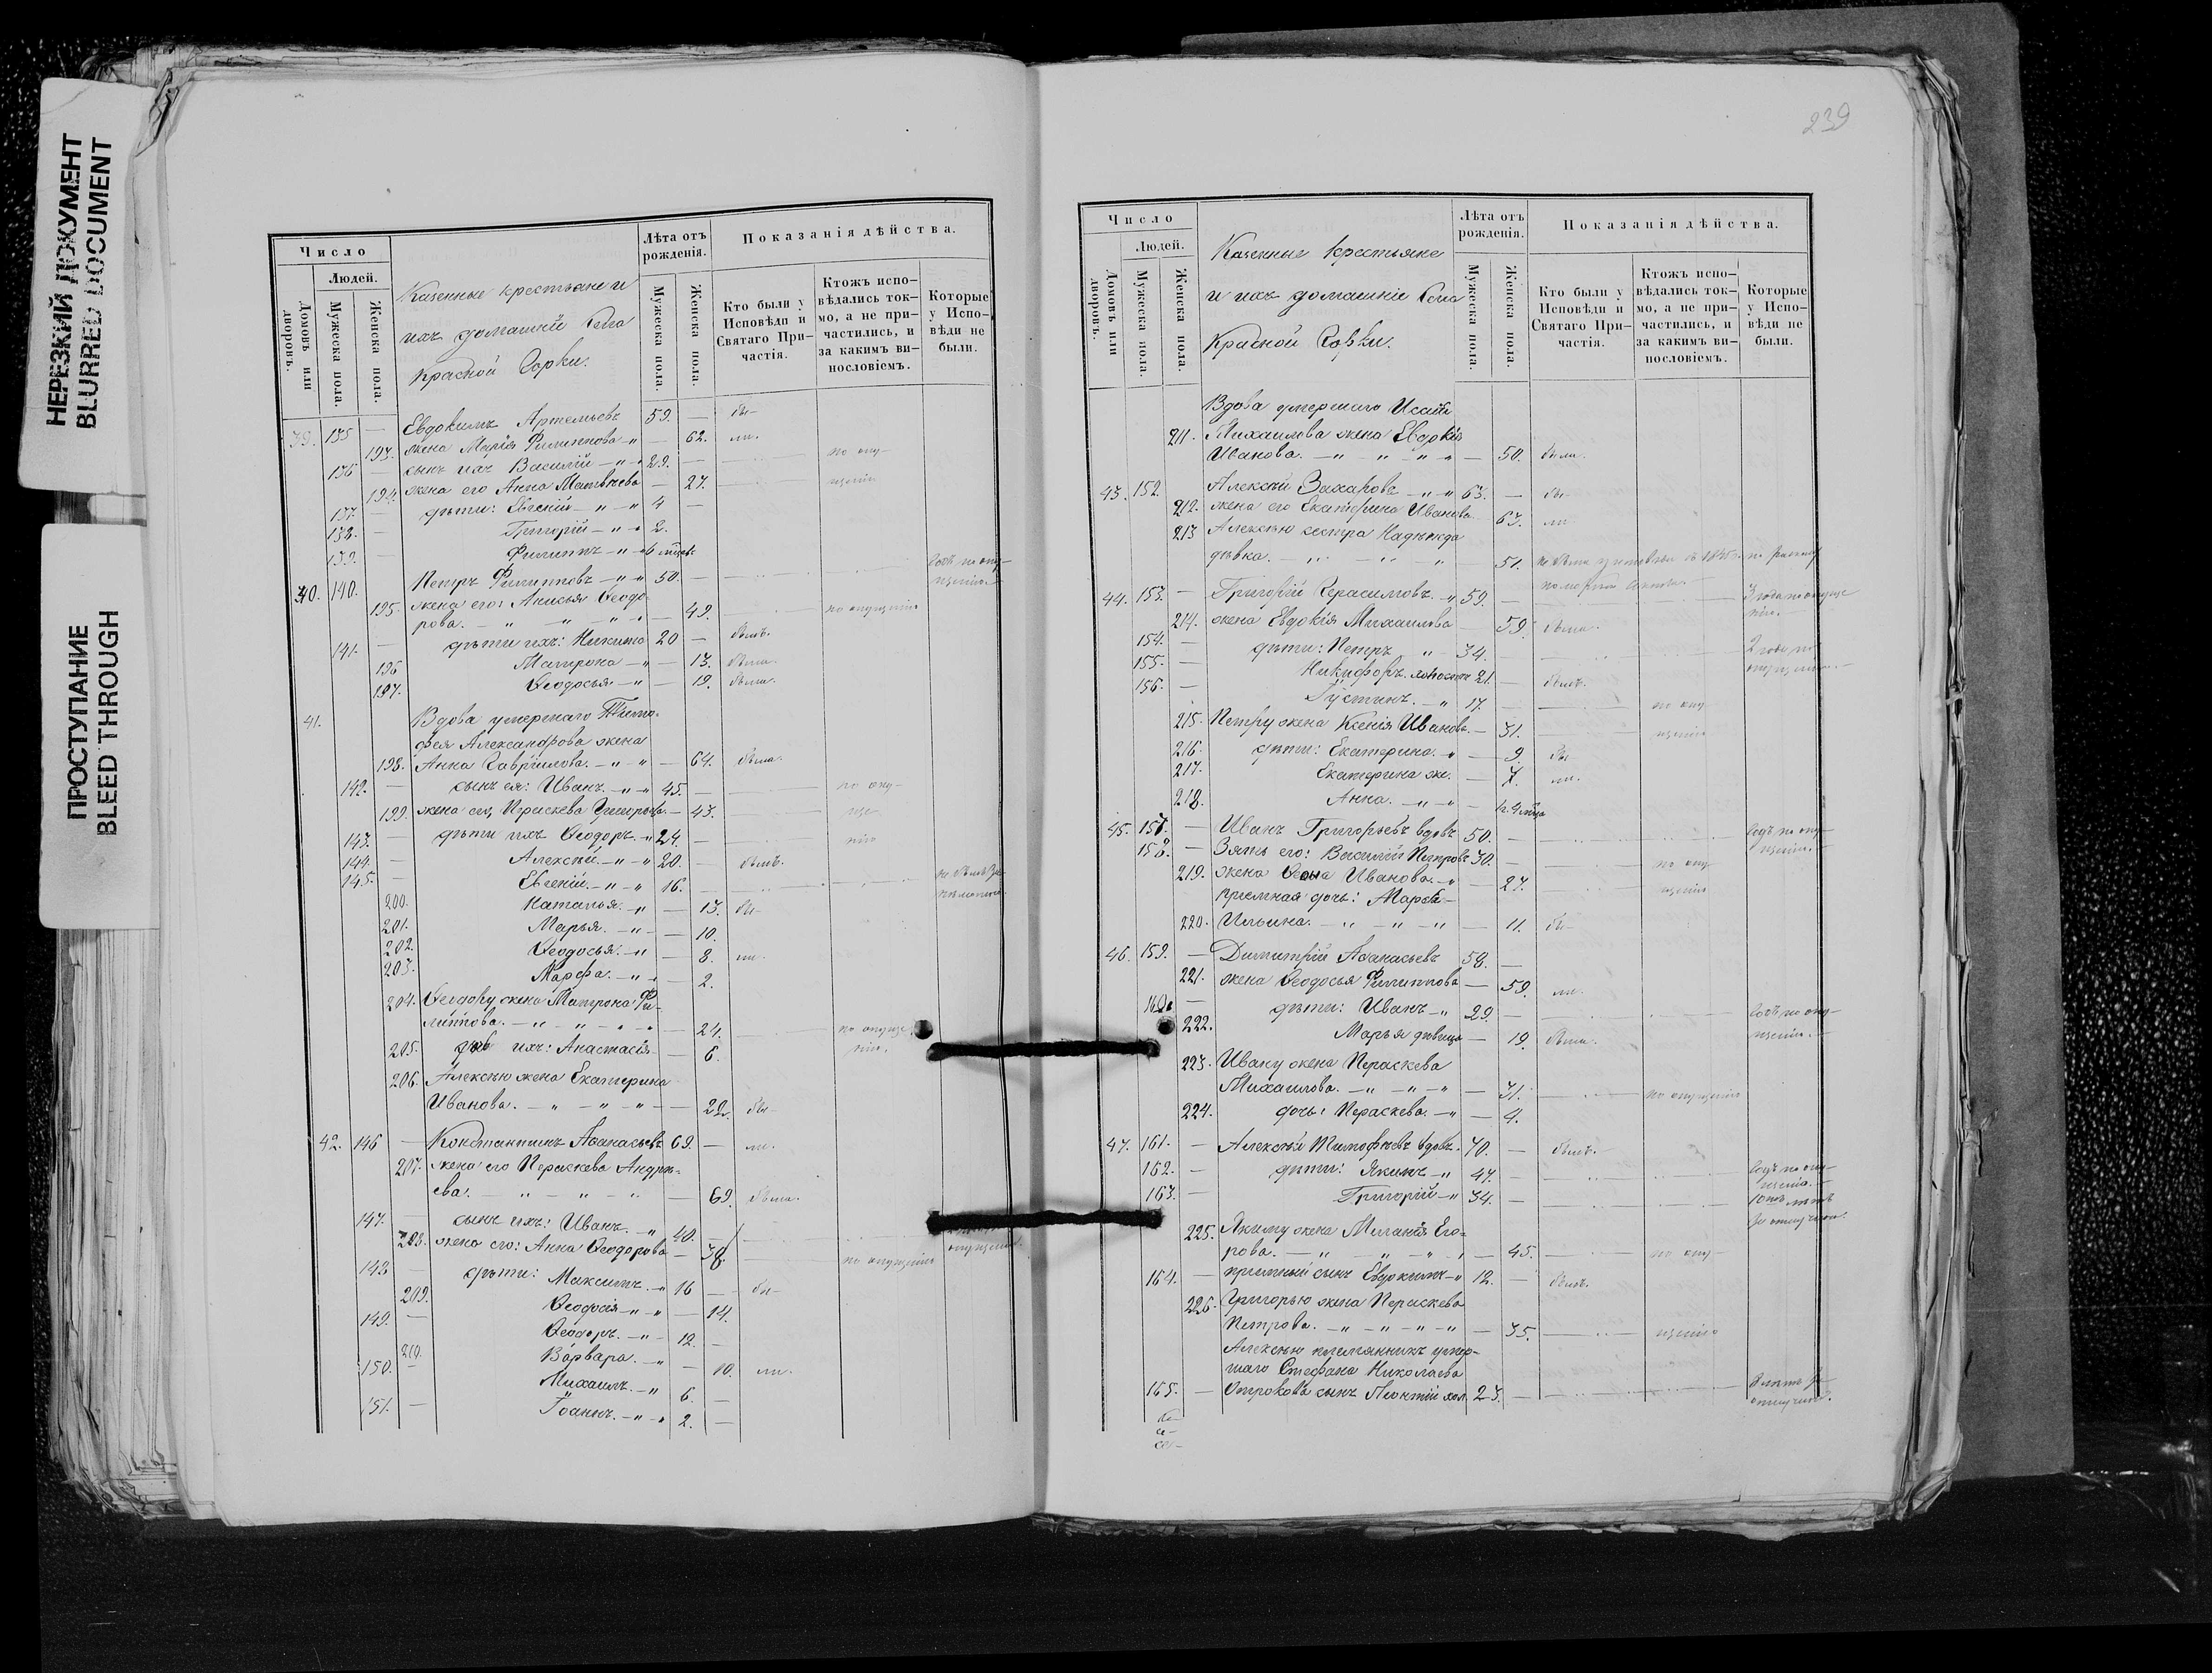 НЕРЕЗКИЙ ДОКУМЕНТ
BLURRED DOCUMENT
ПРОСТУПАНИЕ
BLEED THROUGH
Число
Людей.
Домовъ или дворовъ.
Мужеска пола.
Женска пола.
Казенные крестьяне и
ихъ домашніи Села
Красной Горки.
Лѣта отъ рожденія.
Мужеска пола.
Женска пола.
Показанія дѣйства.
Кто были у Исповѣди и Святаго Причастія.
Ктожъ исповѣдались токмо, а не причастились, и за какимъ винословіемъ.
Которые у Исповѣди не были.
39. 135 — Евдокимъ Артемьевъ 59. — бы-
193. жена Марія Филиппова — 62. ли.
136 сынъ ихъ Василій 29. — по опу-
194. жена его Анна Матвѣева — 27. щенію
137. дѣти: Евгеній 4 —
138. — Григорій 2.
139. — Филиппъ 6 мцевъ
40. 140. Петръ Филипповъ 50. — Годъ по опу-
щенію.
195. жена его: Анисья Ѳеодо-
рова. — 49. по опущенію
141. — дѣти ихъ: Никита 20 — былъ.
196 Матрона — 13. была.
197. Ѳеодосья — 19. была.
41. Вдова умершаго Тимо-
фея Александрова жена
198. Анна Гавріилова. — 64. была.
142. — сынъ ея: Иванъ. 45. — по опу-
199. жена его, Параскева Григорьева — 43. ще-
143. — дѣти ихъ Ѳеодоръ. 24. — нію
144. — Алексѣй. 20. — былъ.
145. — Евгеній. 16. —
200. Наталья. — 13. бы-
201. Марья. — 10.
202. Ѳеодосья. — 8. ли.
203. Марфа. — 2.
204. Ѳеодору жена Матрона Фи-
липпова. — 24. по опуще-
нію.
205. дочь ихъ: Анастасія — 6.
206. Алексѣю жена Екатерина
Иванова. — 22. бы-
42. 146 — Константинъ Аѳанасьевъ 69. — ли.
207. жена его Параскева Андре-
ева. — 69. была.
147. — сынъ ихъ: Иванъ. 40.
208. жена его: Анна Ѳеодорова — 38. по опущенію
148 — дѣти: Максимъ. 16 — бы-
209. Ѳеодосія — 14.
149. — Ѳеодоръ. 12. —
210. Варвара. — 10. ли.
150. — Михаилъ. 6. —
151. — Іоаннъ. 2. —
239
Число
Людей.
Домовъ или дворовъ.
Мужеска пола.
Женска пола.
Казенные крестьяне
и ихъ домашніе Села
Красной Горки.
Лѣта отъ рожденія.
Мужеска пола.
Женска пола.
Показанія дѣйства.
Кто были у Исповѣди и Святаго Причастія.
Ктожъ исповѣдались токмо, а не причастились, и за какимъ винословіемъ.
Которые у Исповѣди не были.
Вдова умершаго
211. Михаилова жена Евдокія
Иванова. — 50. была.
43. 152. Алексѣй Захаровъ 63. — бы-
212. жена его Екатерина Иванова 67. ли
213 Алексѣю сестра Надежда
дѣвка. — 51.
44. 153. — Григорій Герасимовъ. 59. — 3 года по опуще-
нію.
214. жена Евдокія Михаилова 59. была.
154. — дѣти: Петръ 34. — 2 года по
опущенію.
155. — Никифоръ холостъ 21. — былъ.
156. — Іустинъ. 17. — по опу-
215. Петру жена Ксенія Иванова. — 31. щенію
216. дѣти: Екатерина. — 9. бы-
217. Екатерина же. — 7. ли.
218. Анна.
45. 157. — Иванъ Григорьевъ вдовъ 50. — Годъ по опу-
щенію.
158. — Зять его: Василій Петровъ 30. — по опу-
219. жена Иванова. — 27. щенію
пріемная дочь: Марѳа
220. Ильина. — 11. бы-
46. 159. — Димитрій Аѳанасьевъ 58. —
221. жена Ѳеодосья Филиппова — 59. ли.
160. — дѣти: Иванъ 29. — Годъ по опу-
222. Марья дѣвица — 19. была. щенію.
223. Ивану жена Параскева
Михаилова. — 31. по опущенію
224. дочь: Параскева. — 4.
47. 161. — Алексѣй Тимофѣевъ вдовъ. 70. — былъ.
162. — дѣти: Якимъ 47. — Годъ по опу-
щенію.
163. — Григорій 34. —
225. Якиму жена Меланія Его-
рова. — 45. по опу-
164. — пріемный сынъ Евдокимъ 12. — былъ.
226. Григорью жена Параскева
Петрова. — 35. щенію
Алексѣю племянникъ умер-
шаго Стефана Николаева
165. — Отрокова сынъ Леонтій хол. 23. —